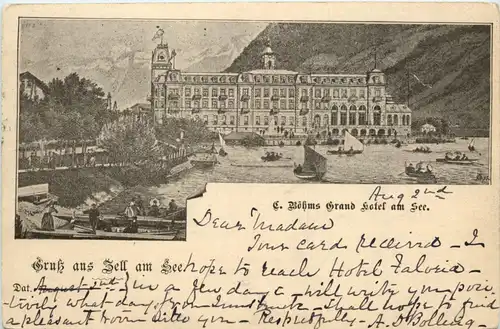 C. Böhms Grand Hotel am See.
Aug 2nd
Dear Madam
Your card received – I
Gruß aus Zell am See. hope to reach Hotel
Dat. in a few days – will write you posi-
tively what day from Innsbruck. Shall hope to find
a pleasant room
you – Respectfully –